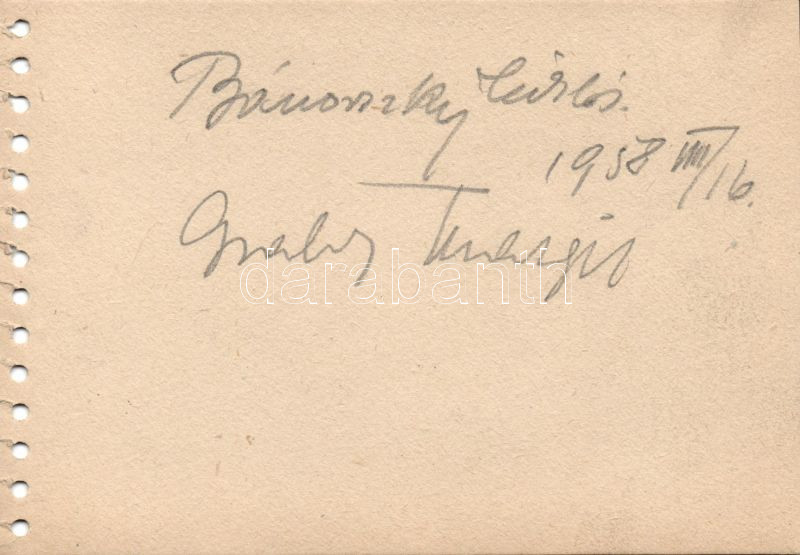 Bánovszky Miklós.
1958 III/16.
Graby Margit
darabanth